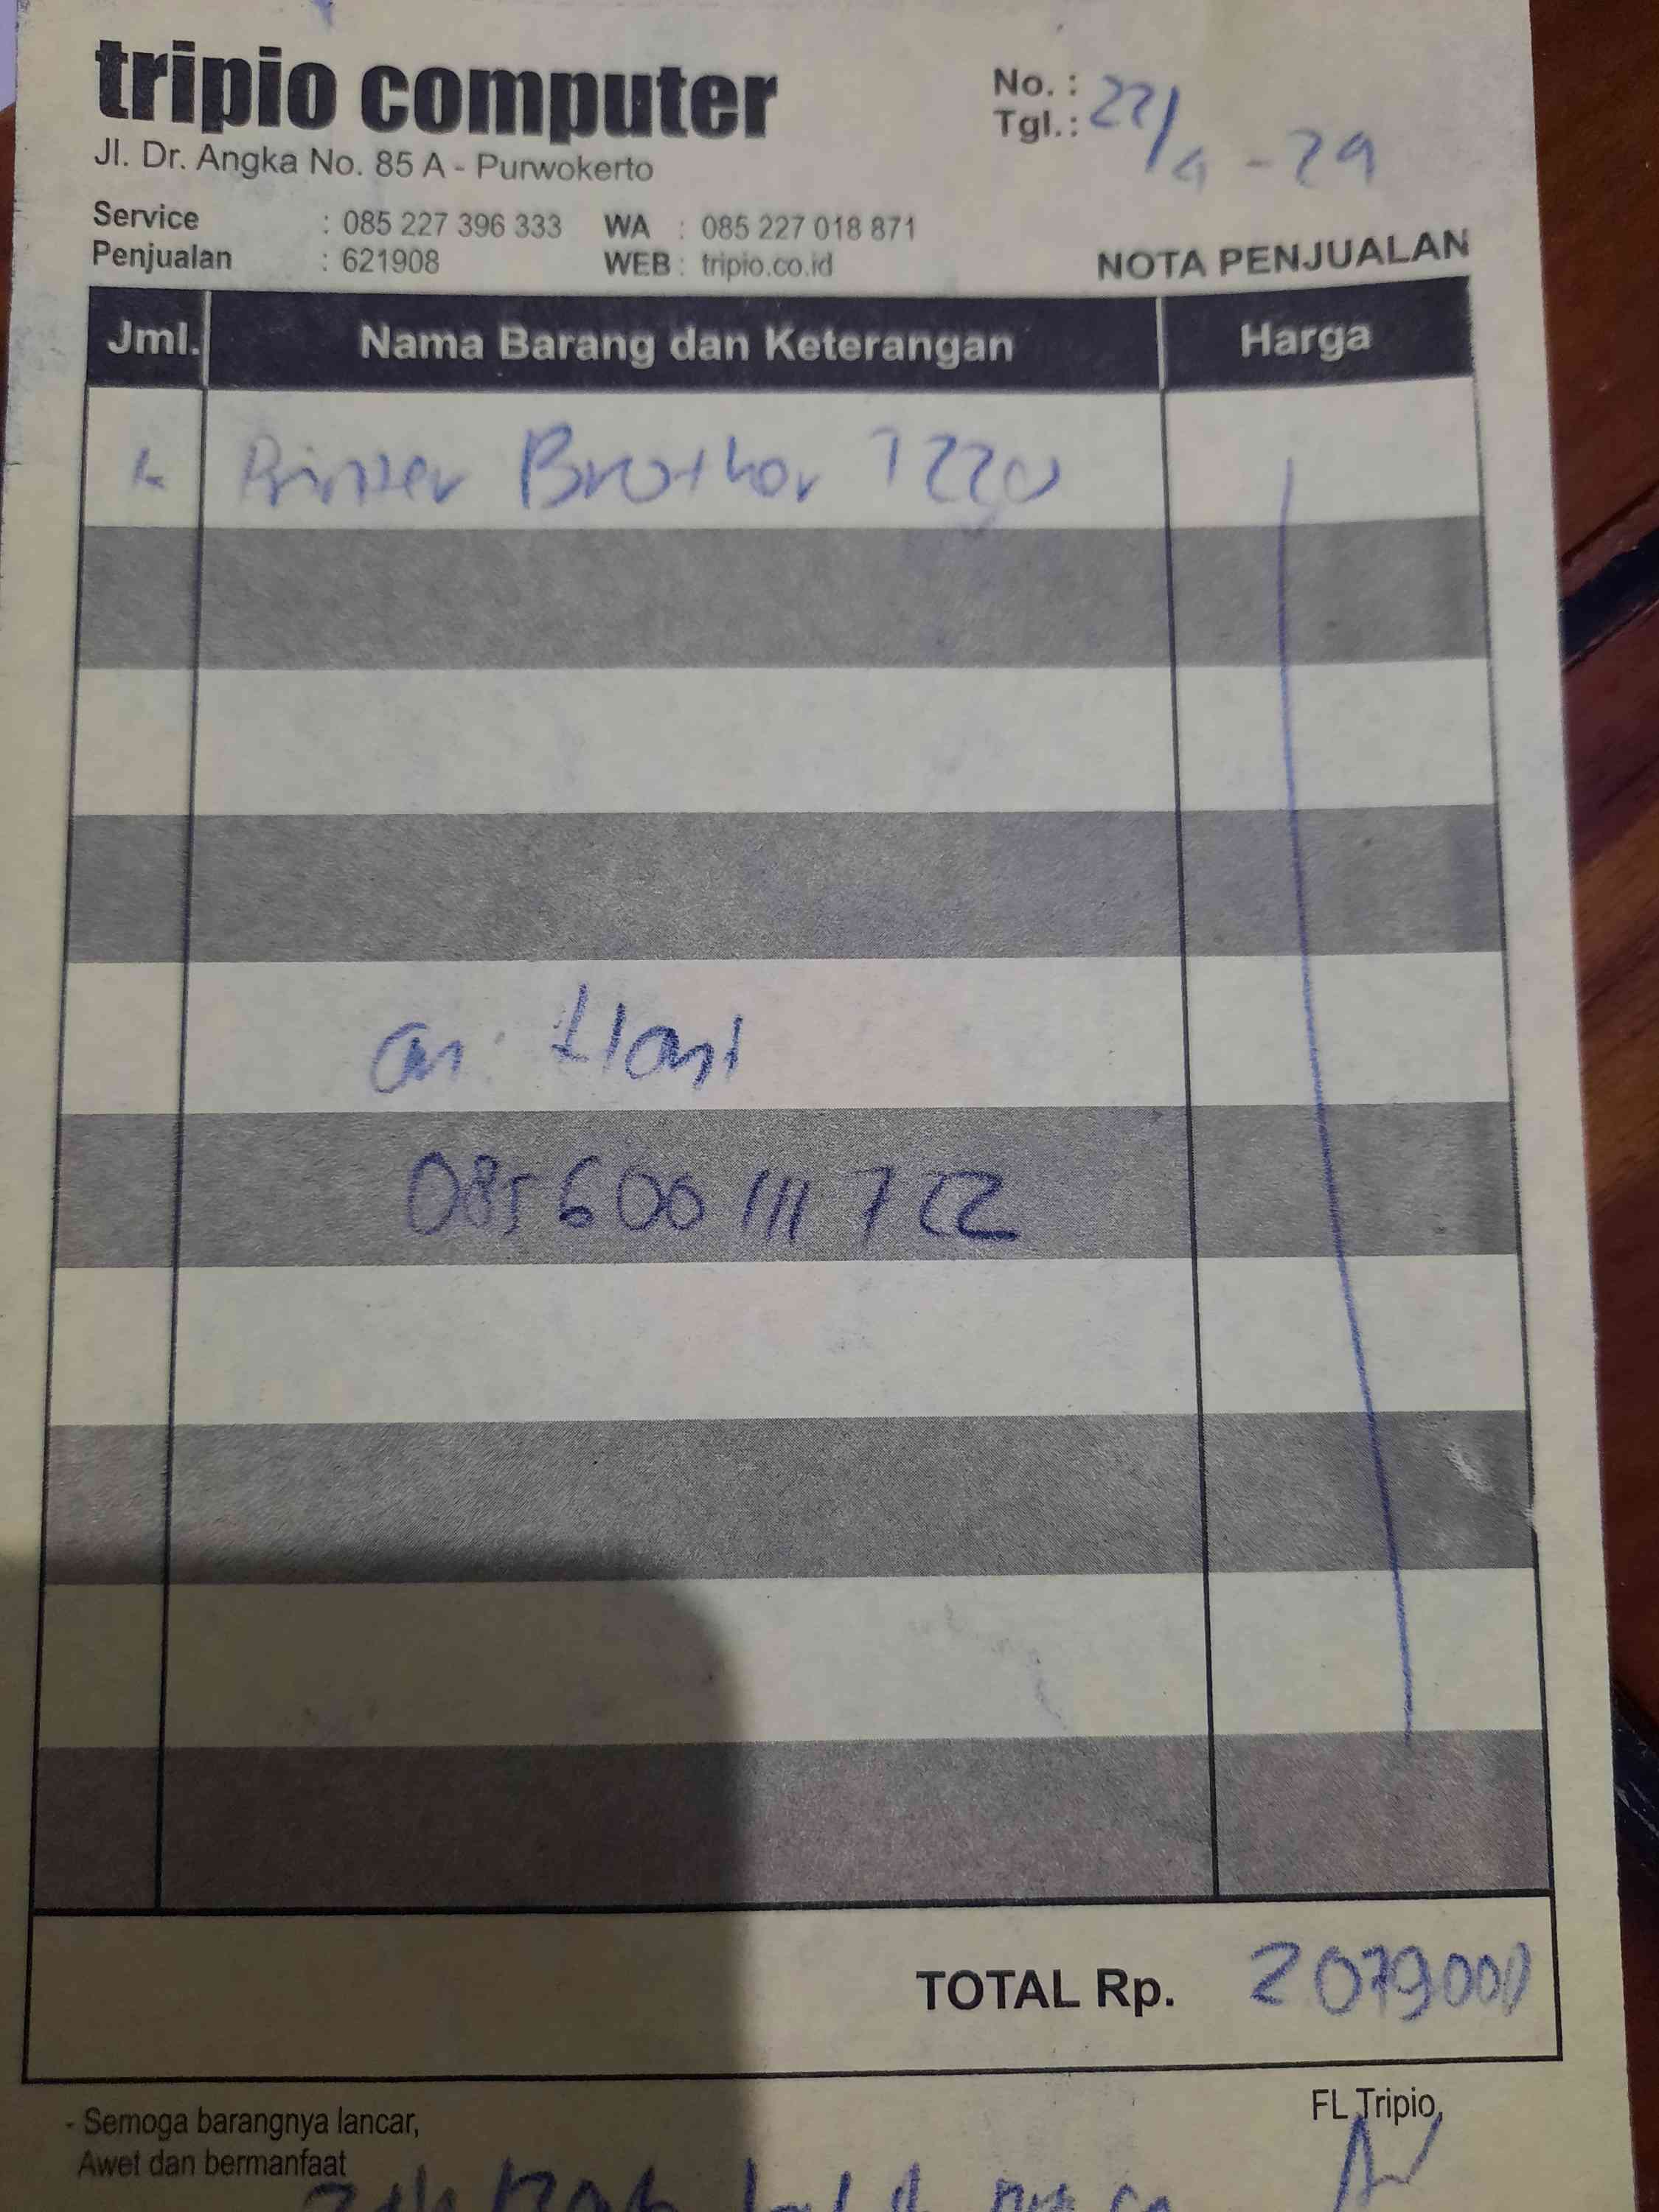 tripio computer
Jl. Dr. Angka No. 85 A - Purwokerto
Service : 085 227 396 333 WA : 085 227 018 871
Penjualan : 621908 WEB : tripio.co.id
No. :
Tgl. : 22/4 - 24
NOTA PENJUALAN
Jml. Nama Barang dan Keterangan Harga
1 Printer Brother T220
an: Hani
085600111722
TOTAL Rp. 2079000
- Semoga barangnya lancar,
Awet dan bermanfaat
FL Tripio,